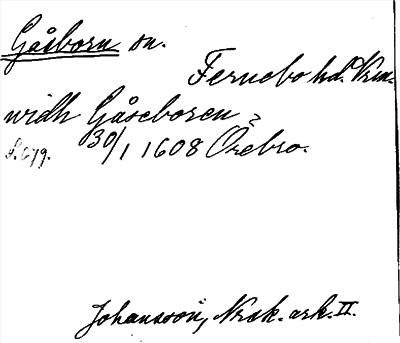 Gåsborn sn.
Fernebo hd. Vrm.
widh Gåseboren ?
S. 679. 30/1 1608 Örebro.
Johansson, Norsk. ark. II.